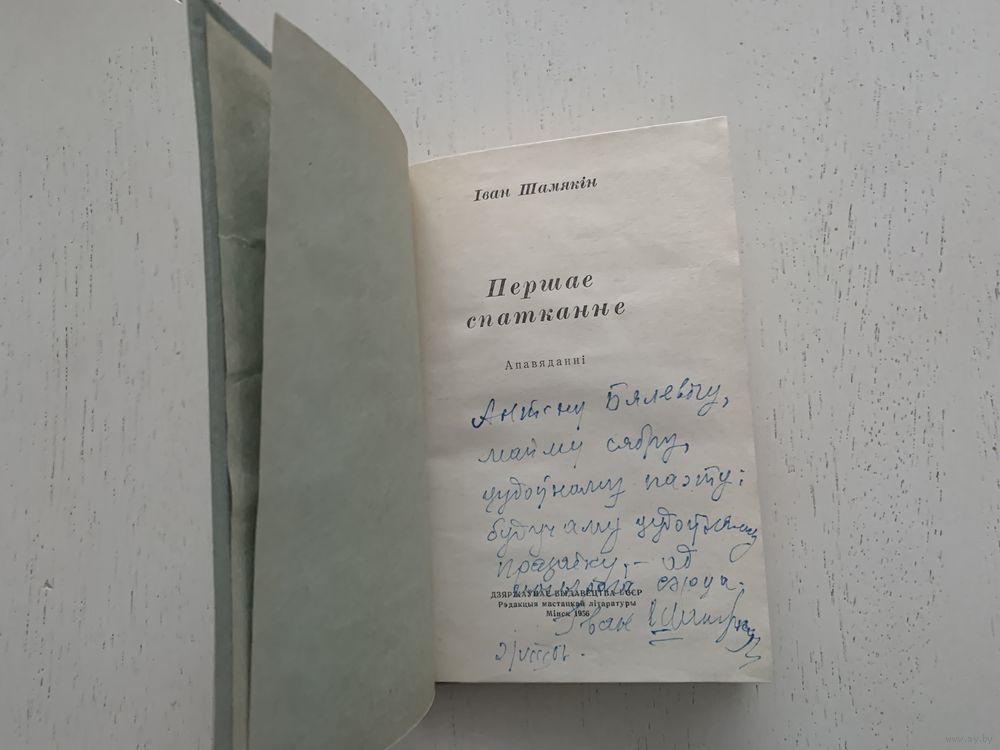 Іван Шамякін
Першае
спатканне
Апавяданні
Антону Бялевічу,
майму сябру,
цудоўнаму паэту і
будучаму цудоўнаму
празаіку, – ад
сэрца.
ДЗЯРЖАЎНАЕ ВЫДАВЕЦТВА БССР
Рэдакцыя мастацкай літаратуры
Мінск 1956
Іван Шамякін
www.ay.by